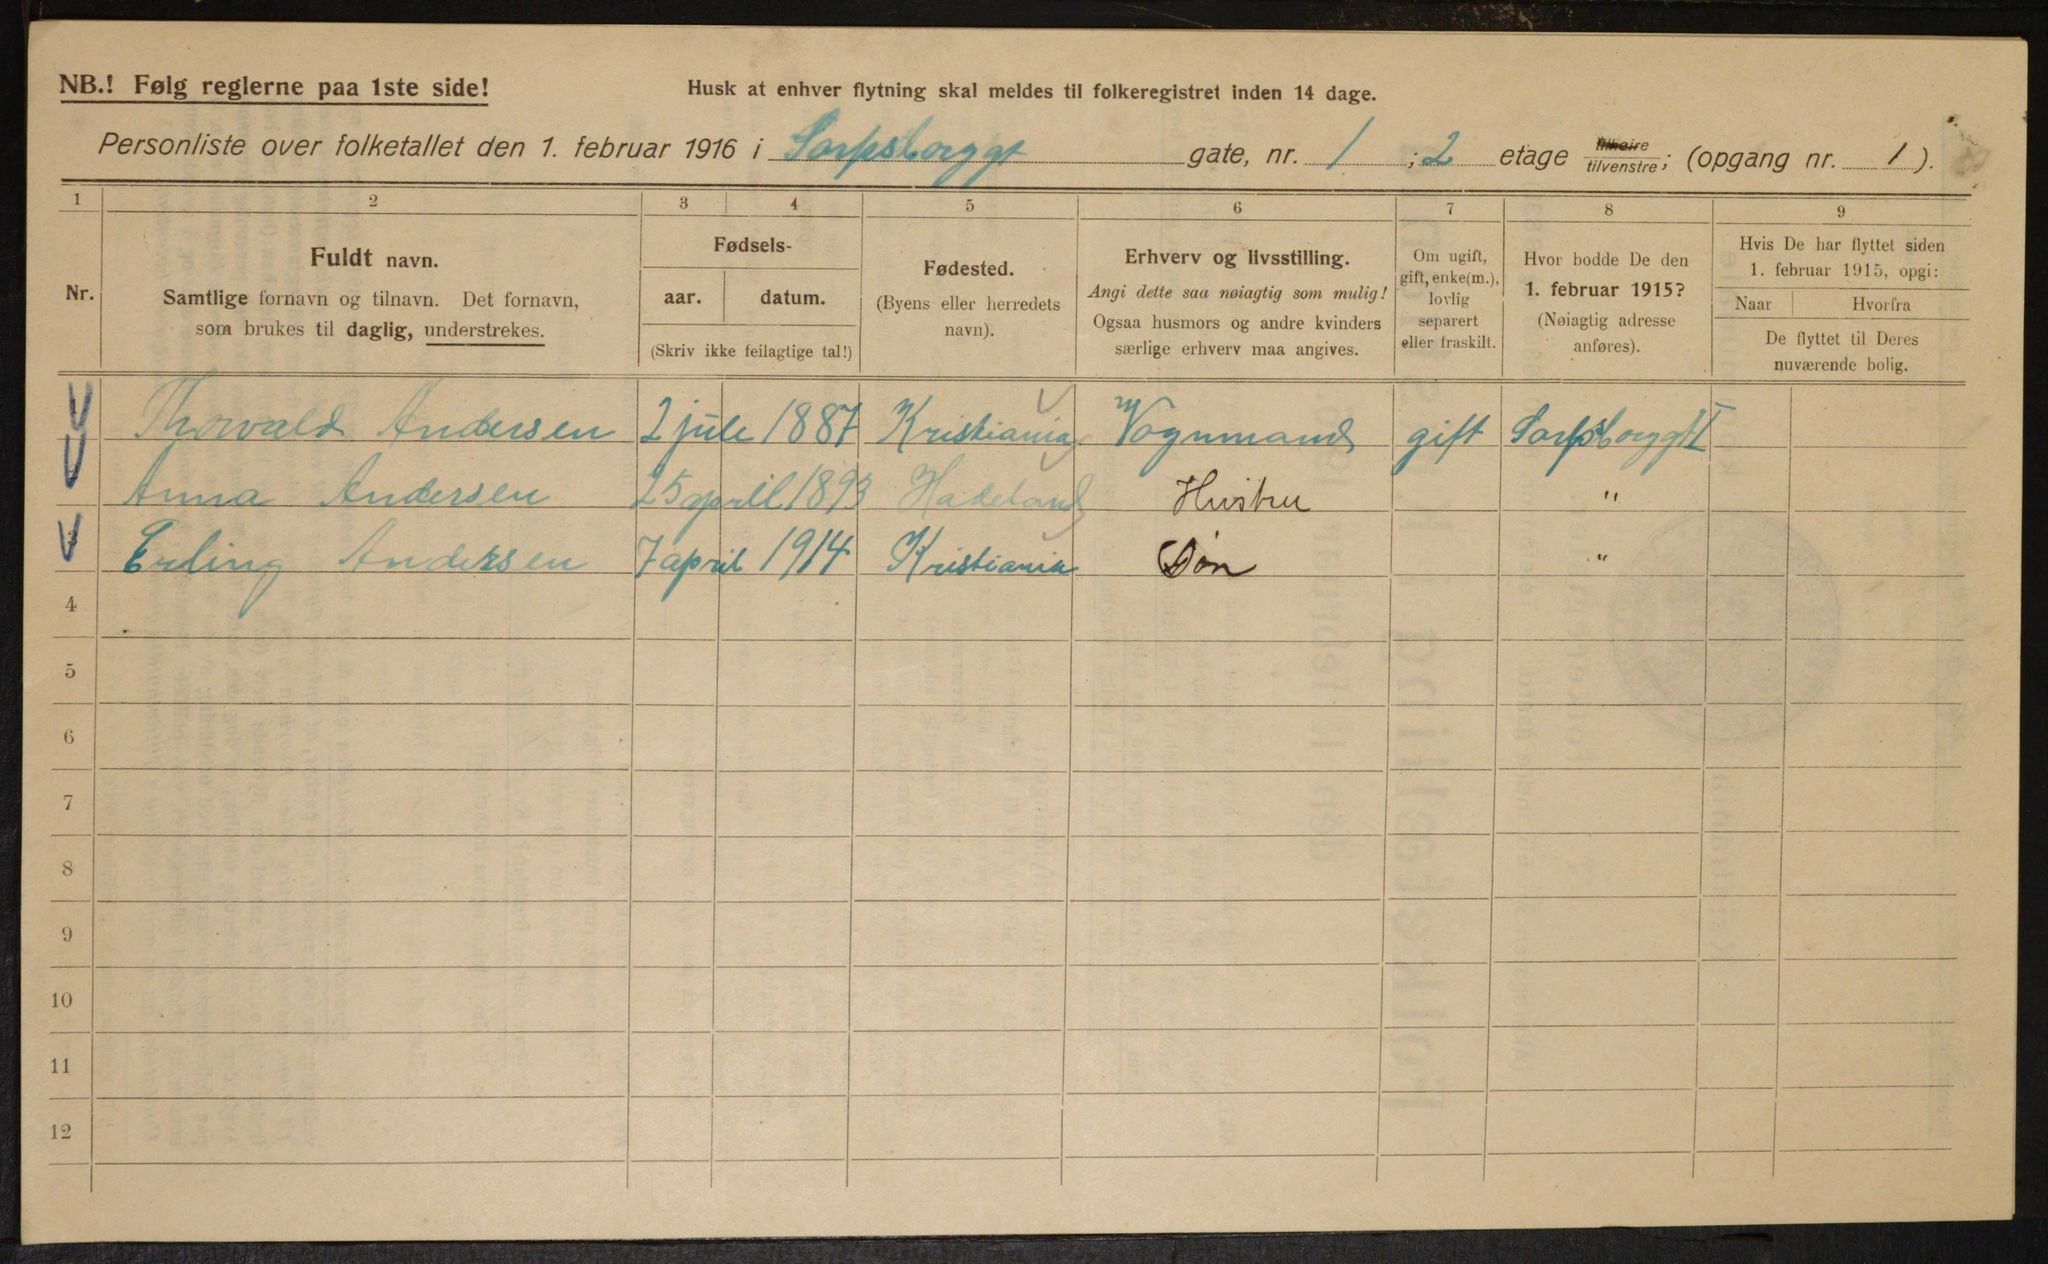 NB.! Følg reglerne paa 1ste side!
Husk at enhver flytning skal meldes til folkeregistret inden 14 dage.
Personliste over folketallet den 1. februar 1916 i Sarpsborggt gate, nr. 1 ; 2 etage tilhøire / tilvenstre; (opgang nr. 1).
1 2 3 4 5 6 7 8 9
Nr.
Fuldt navn.
Samtlige fornavn og tilnavn. Det fornavn,
som brukes til daglig, understrekes.
Fødsels-
aar. datum.
(Skriv ikke feilagtige tal!)
Fødested.
(Byens eller herredets
navn).
Erhverv og livsstilling.
Angi dette saa nøiagtig som mulig!
Ogsaa husmors og andre kvinders
særlige erhverv maa angives.
Om ugift,
gift, enke(m.),
lovlig
separert
eller fraskilt.
Hvor bodde De den
1. februar 1915?
(Nøiagtig adresse
anføres).
Hvis De har flyttet siden
1. februar 1915, opgi:
Naar Hvorfra
De flyttet til Deres
nuværende bolig.
Thorvald Andersen 2 juli 1887 Kristiania Vognmand gift Sarpsborggt I
Anna Andersen 25 april 1893 Hadeland Hustru "
3 Erling Andersen 7 april 1914 Kristiania Søn "
4
5
6
7
8
9
10
11
12